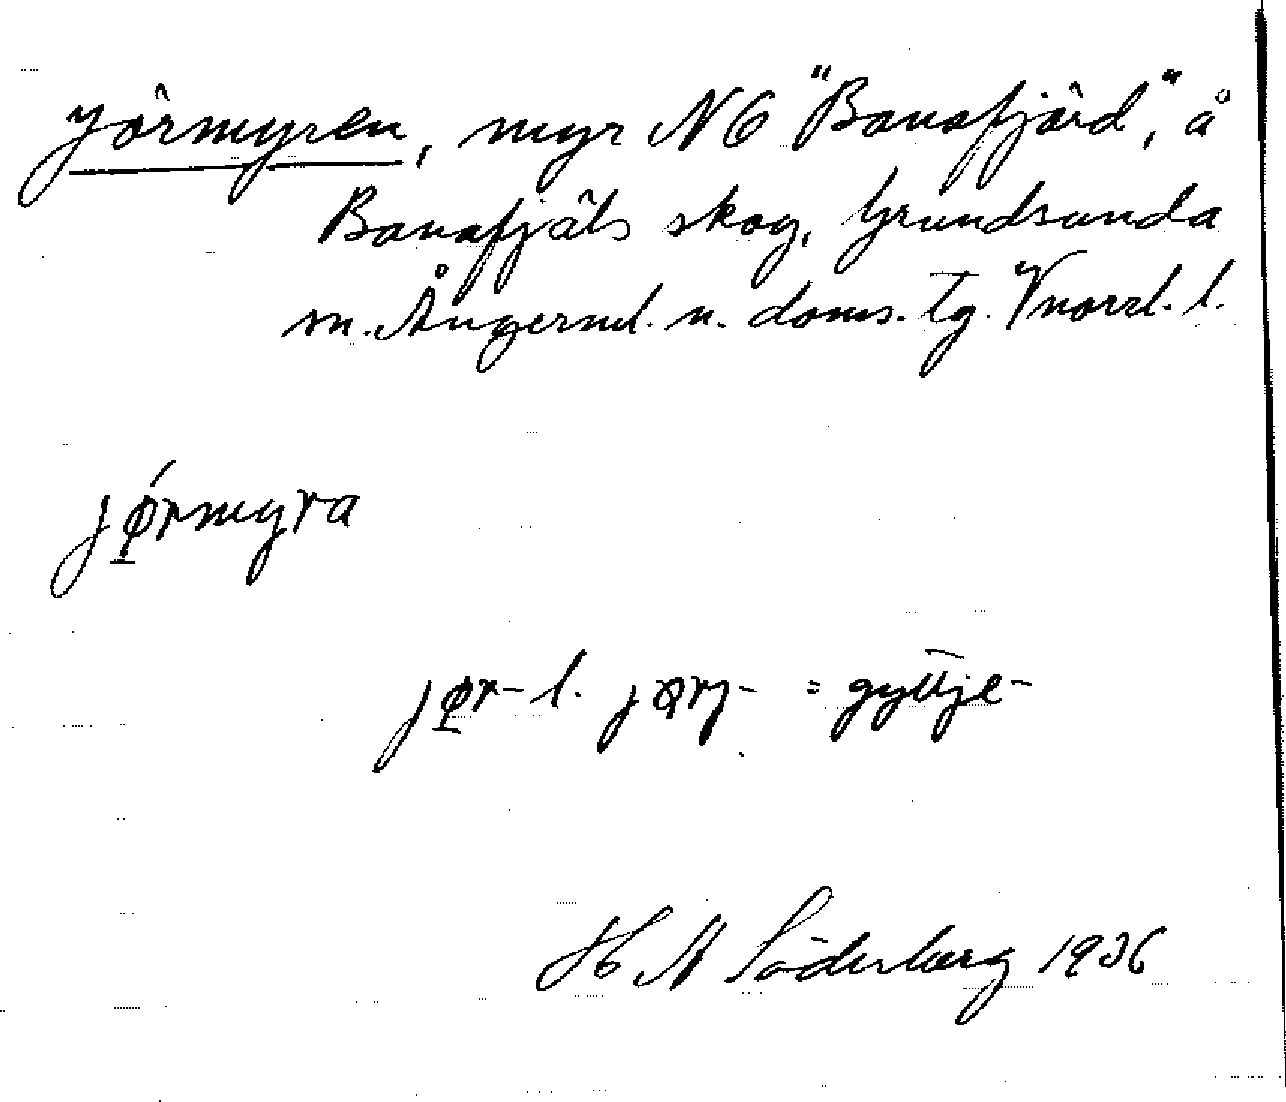 Jörmyren, myr NO "Banafjärd", å
Banafjäls skog, Grundsunda
sn. Ångerml. n. doms. tg. Vnorrl. l.
jørmyra
jør- l. jørj- = gyttje-
H N Söderberg 1936